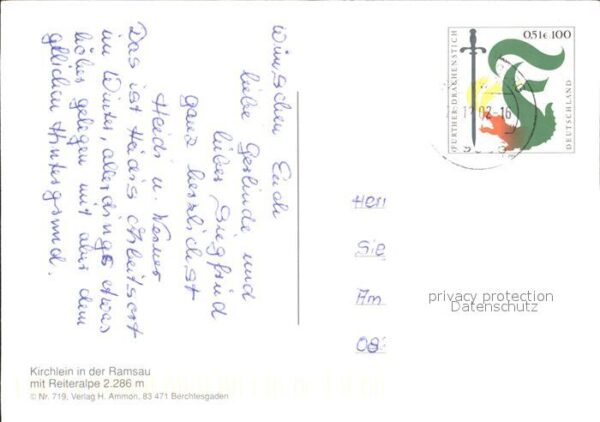 wünschen Euch
liebe Gerlinde und
lieber Siegfried
ganz herzlichst
Heidi u. Werner
Das ist Heidis Arbeitsort
im Winter, allerdings etwas
höher gelegen mit aber dem
gleichen Hintergrund.
FURTHER-DRACHENSTICH
0,51€ 100
DEUTSCHLAND
02-16
Herr
Sie
Am
08
privacy protection
Datenschutz
Kirchlein in der Ramsau
mit Reiteralpe 2.286 m
© Nr. 719, Verlag H. Ammon, 83 471 Berchtesgaden